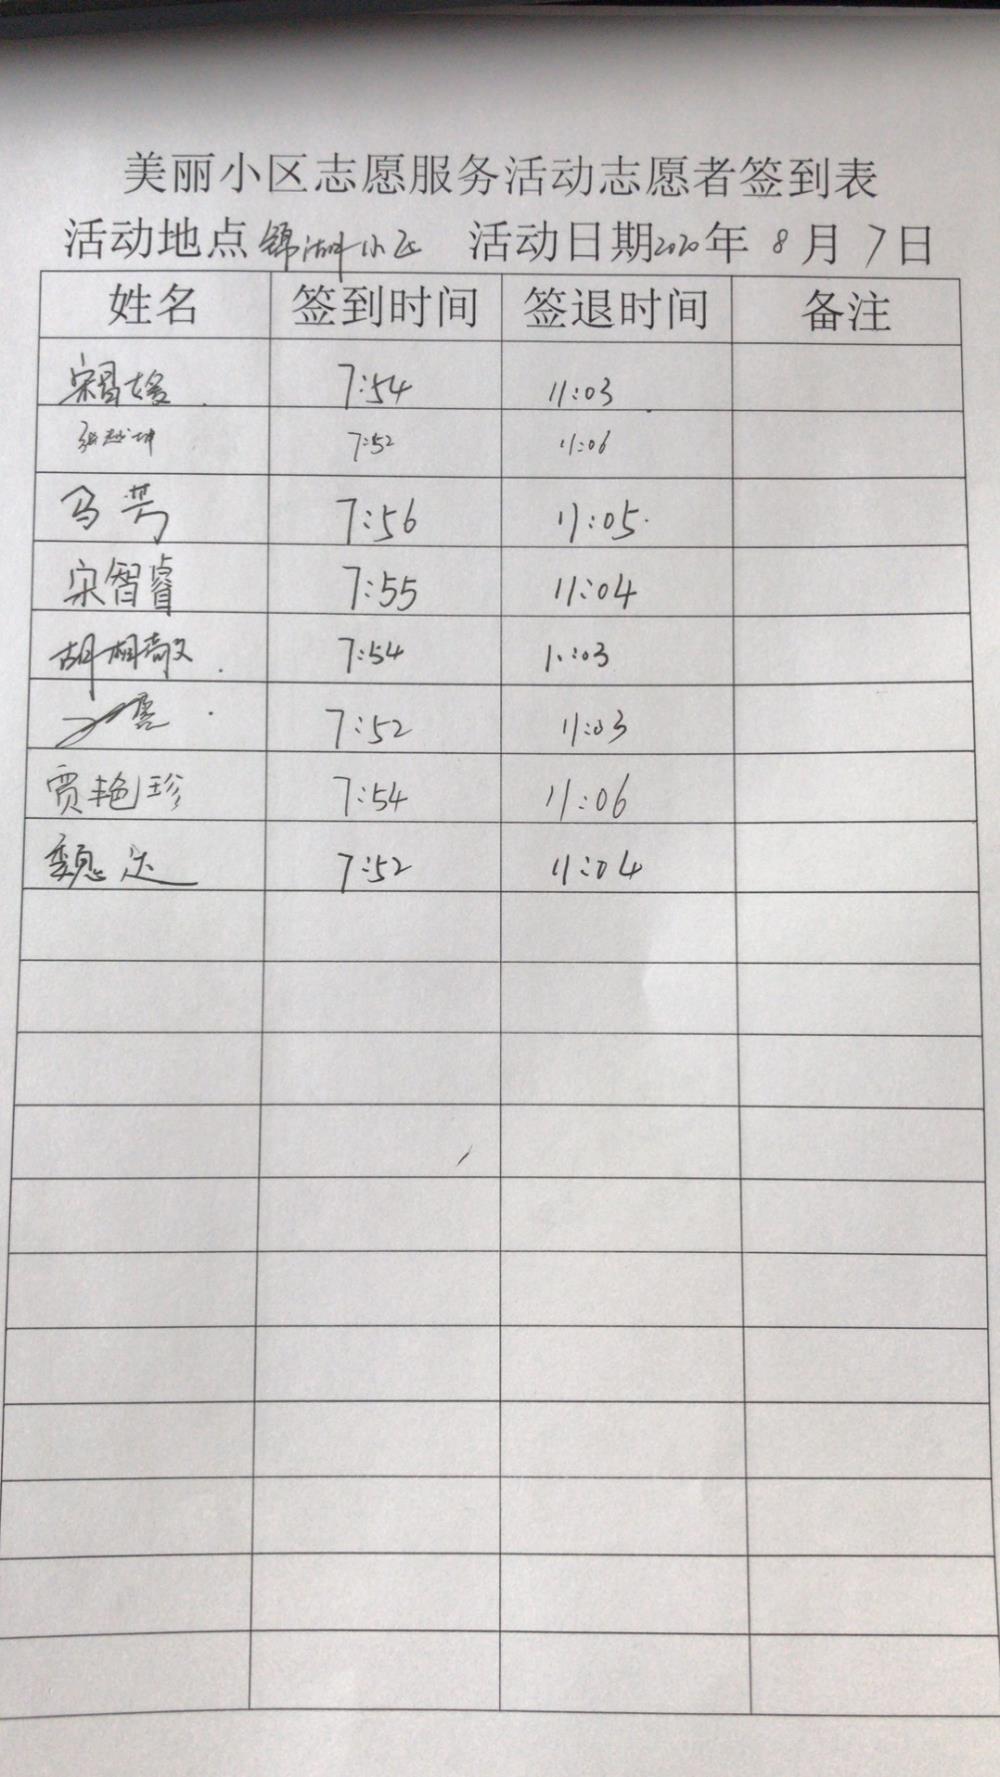 美丽小区志愿服务活动志愿者签到表
活动地点 锦湖小区 活动日期2020年 8 月 7 日
姓名 签到时间 签退时间 备注
7:54 11:03
张越坤 7:52 11:06
马芳 7:56 11:05
宋智睿 7:55 11:04
7:54 11:03
7:52 11:03
贾艳珍 7:54 11:06
魏达 7:52 11:04